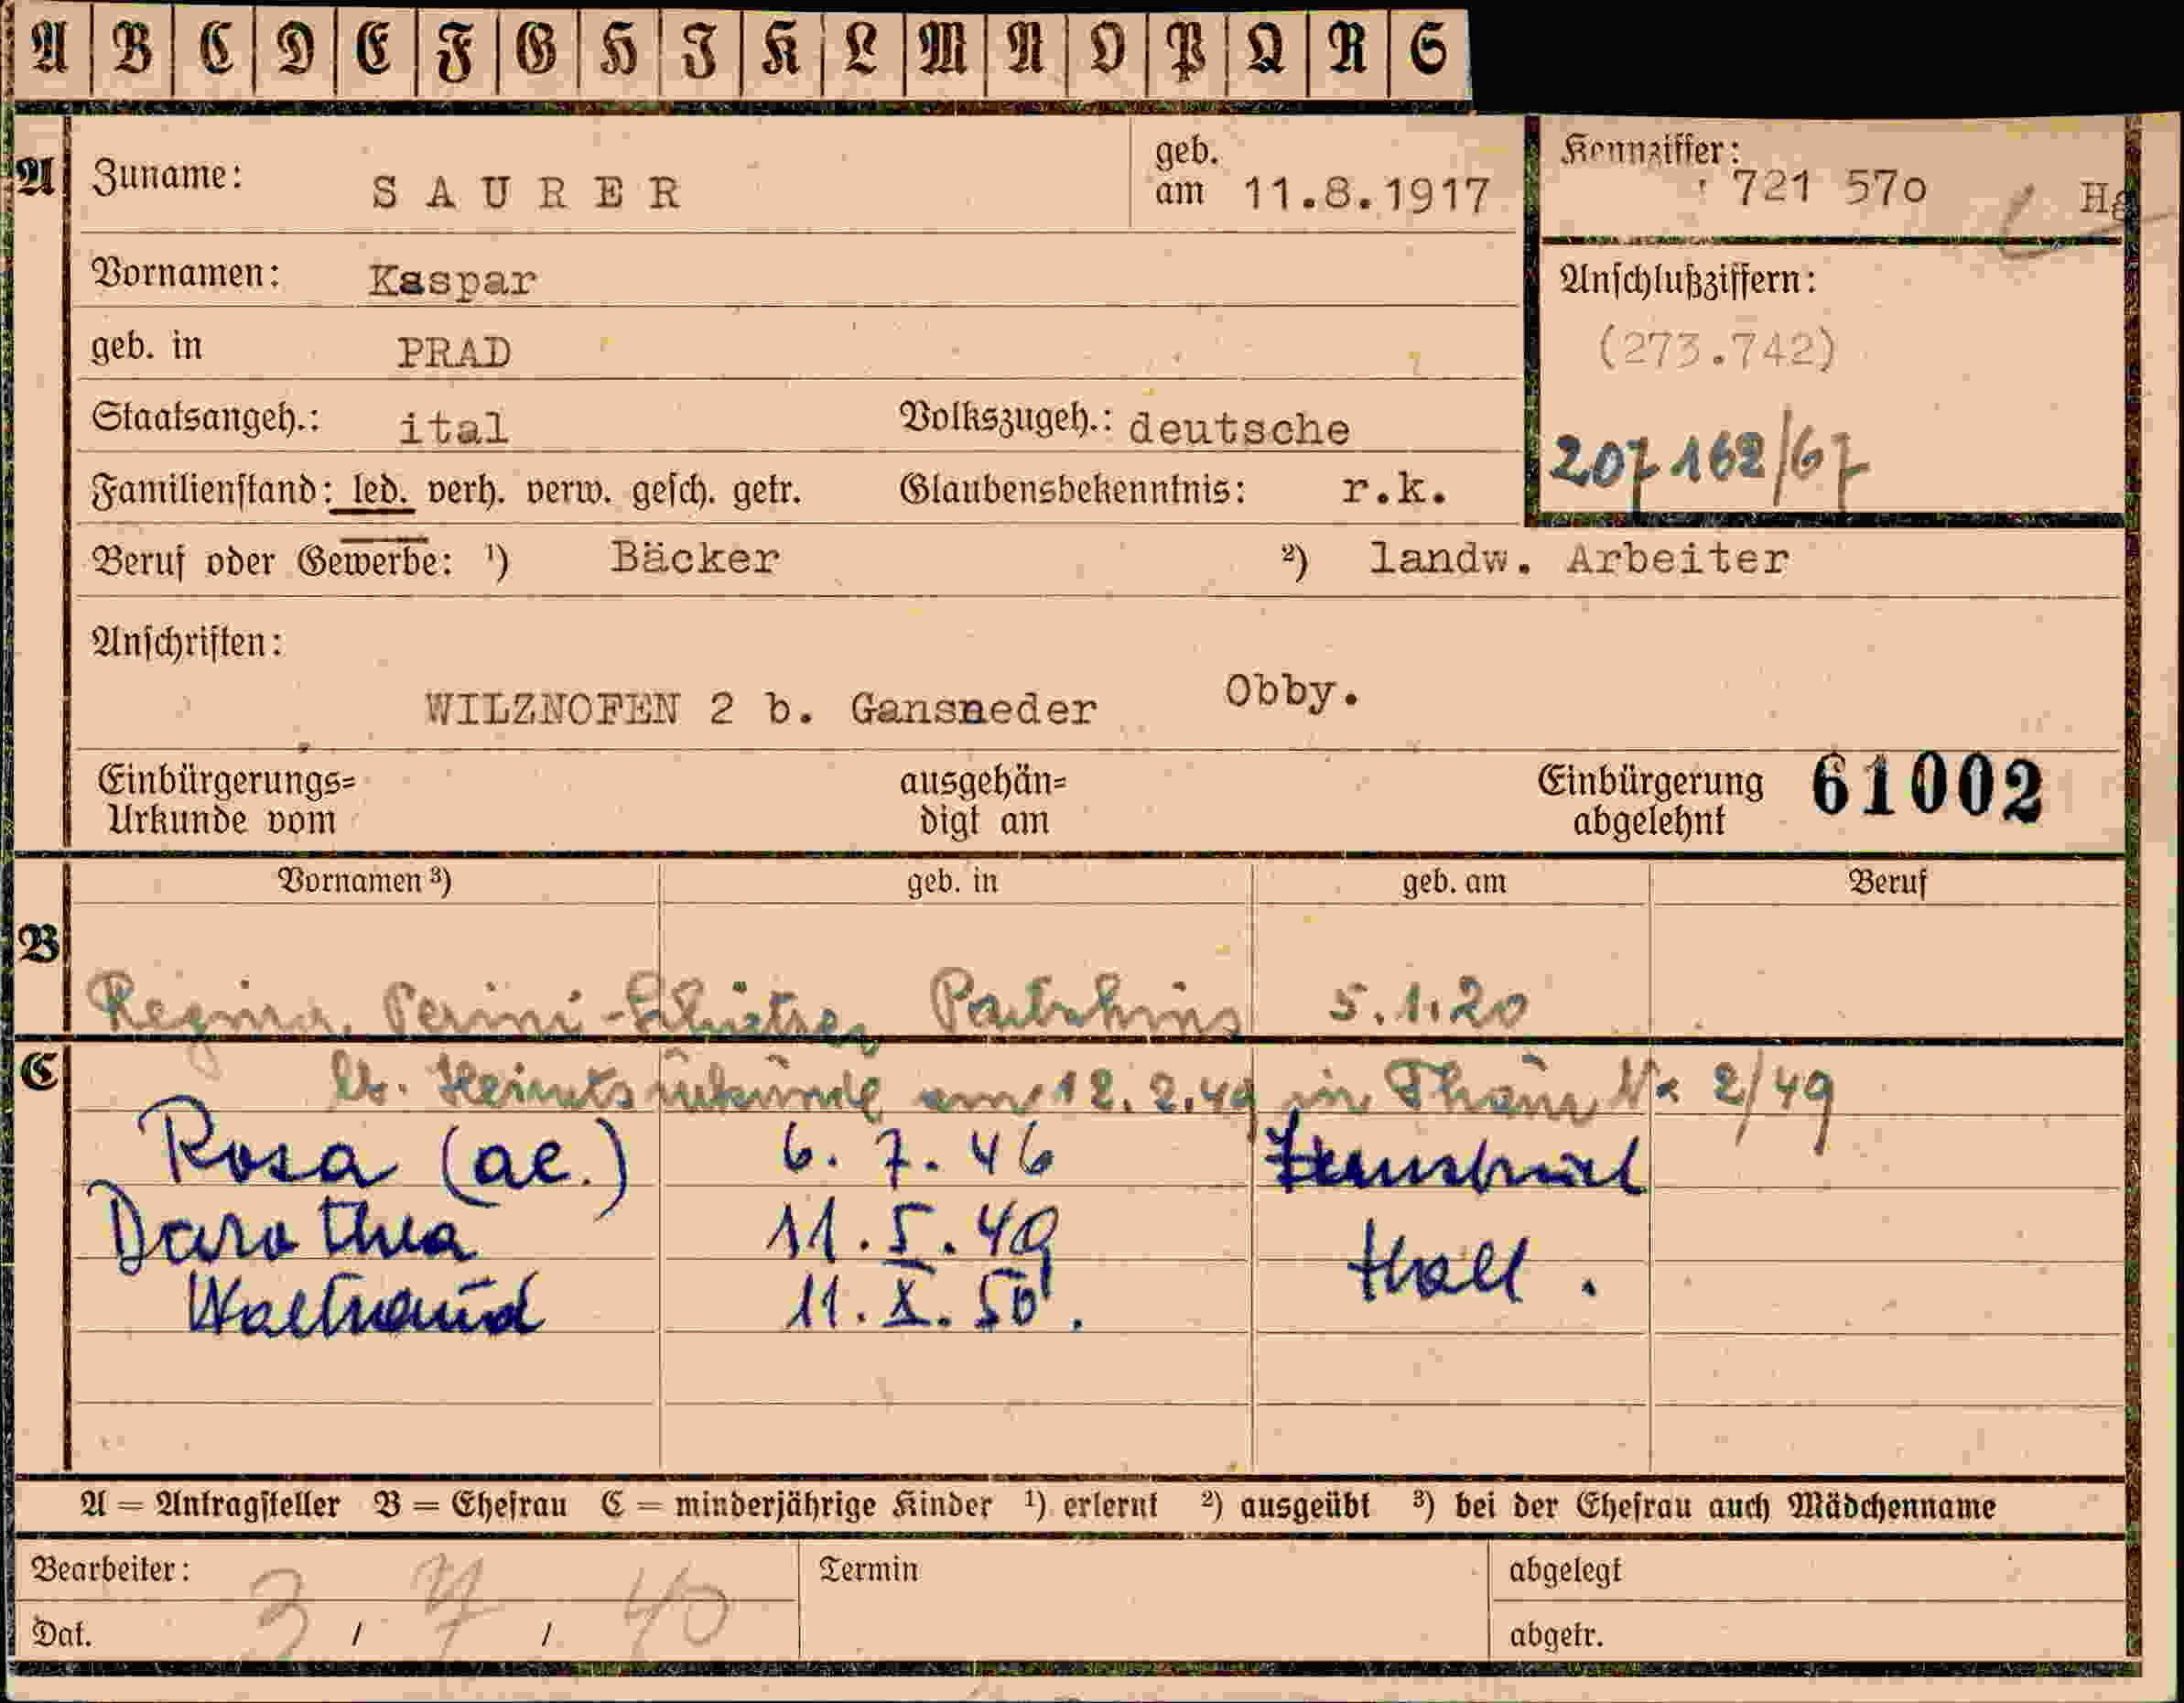 A B C D E F G H I K L M N O P Q R S
A Zuname: SAURER geb. am 11.8.1917 Kennziffer: 721 570 Hg
Vornamen: Kaspar Anschlußziffern:
geb. in PRAD (273.742)
Staatsangeh.: ital Volkszugeh.: deutsche
207 162/67
Familienstand: led. verh. verw. gesch. getr. Glaubensbekenntnis: r.k.
Beruf oder Gewerbe: ¹) Bäcker ²) landw. Arbeiter
Anschriften:
WILZNOFEN 2 b. Gansneder Obby.
Einbürgerungs= ausgehän= Einbürgerung 61002
Urkunde vom digt am abgelehnt
Vornamen ³) geb. in geb. am Beruf
B
Regina Perini- 5.1.20
C lt. Heiratsurkunde am 12.2.49 in Thaur Nr 2/49
Rosa (ae.) 6. 7. 46
Dorothea 11. 5. 49
Hall.
Waltraud 11. X. 50.
A = Antragsteller B = Ehefrau C = minderjährige Kinder ¹) erlernt ²) ausgeübt ³) bei der Ehefrau auch Mädchenname
Bearbeiter: Termin abgelegt
Dat. 3 / 7 / 40 abgetr.